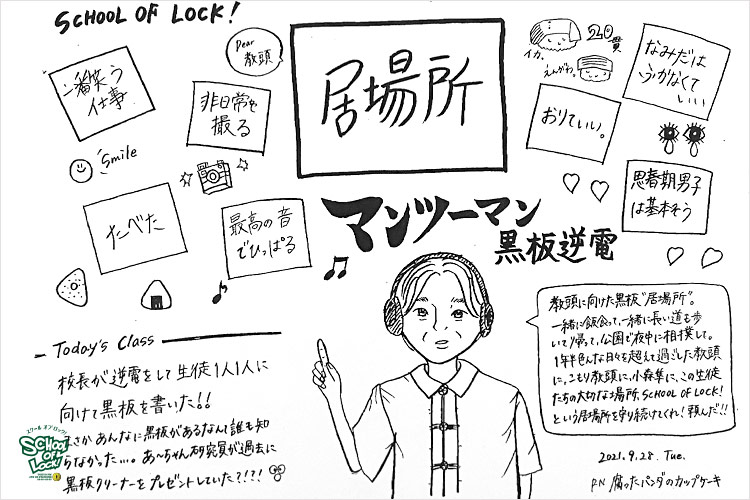 SCHOOL OF LOCK!
一番笑う
仕事
非日常を
撮る
Dear
教頭
居場所
イカ。
えんがわ。
210貫
なみだは
ふかなくて
いい
おりていい。
Smile
たべた
最高の音
でひっぱる
思春期男子
は基本そう
マンツーマン
黒板逆電
Today's Class
校長が逆電をして生徒1人1人に
向けて黒板を書いた!!
まさかあんなに黒板があるなんて誰も知
らなかった…。あ〜ちゃん研究員が過去に
黒板クリーナーをプレゼントしていた?!?!
教頭に向けた黒板"居場所"。
一緒に飯食って、一緒に長い道も歩
いて帰って、公園で夜中に相撲して。
1年半色んな日々を超えて過ごした教頭
に。こもり教頭に。小森隼に。この生徒
たちの大切な場所、SCHOOL OF LOCK!
という居場所を守り続けてくれ!頼んだ!!
2021.9.28. Tue.
P.N 腐ったパンダのカップケーキ
スクール オブ ロック!
SCHOOL
OF
LOCK!